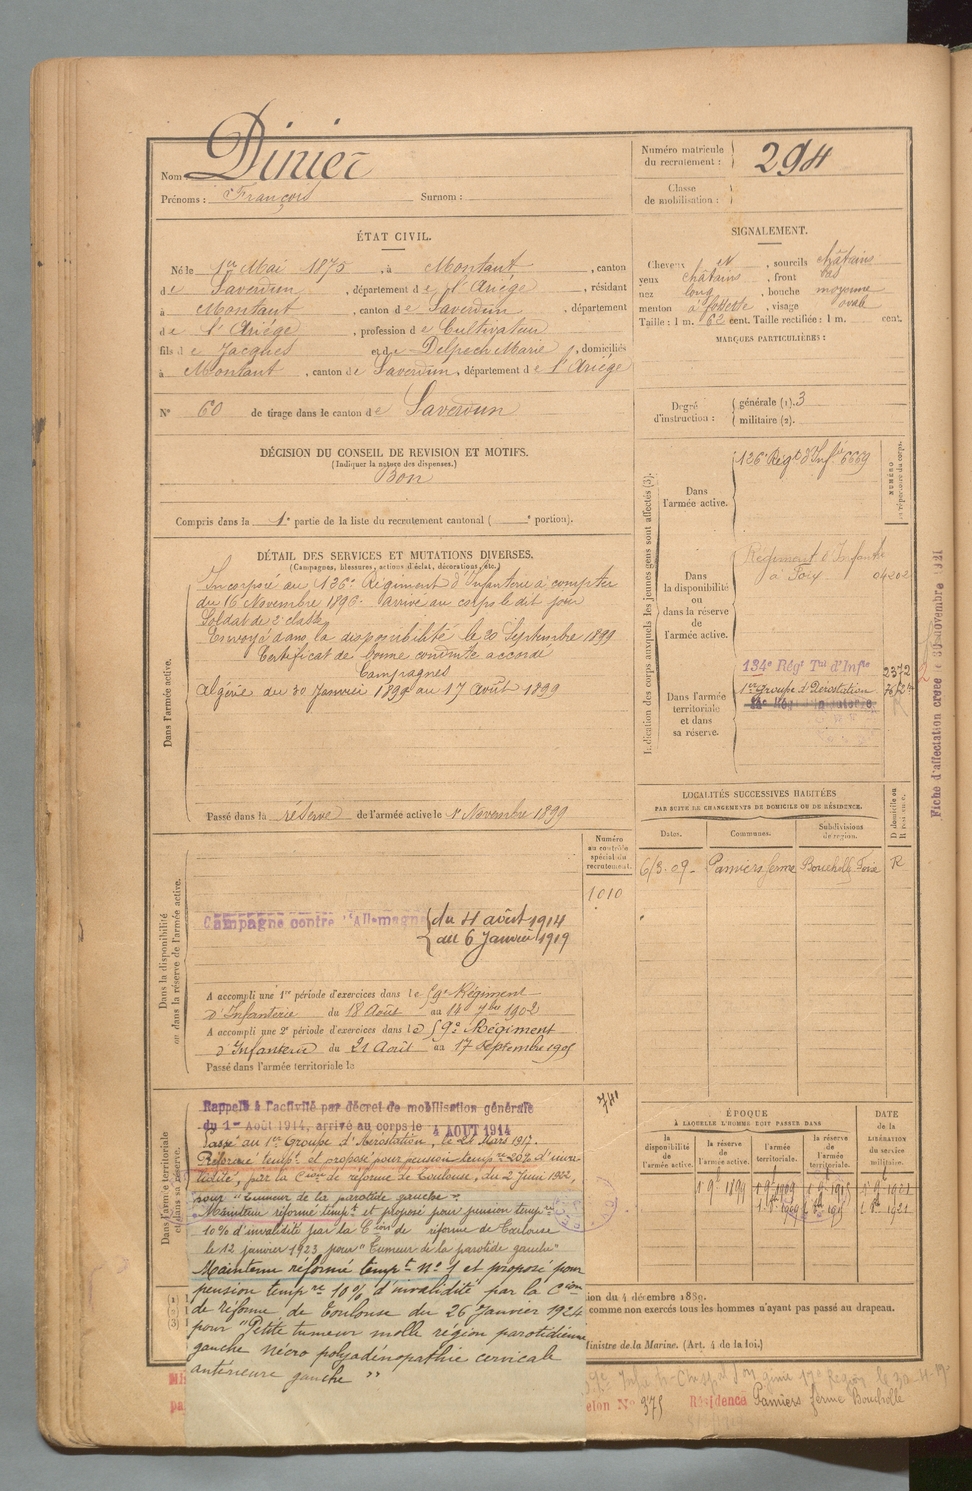 Nom Dinier
Prénoms : François Surnom :
Numéro matricule
du recrutement : 294
Classe
de mobilisation :
ÉTAT CIVIL.
Né le 1er Mai 1875, à Montaut, canton
de Saverdun, département de l'Ariége, résidant
à Montaut, canton de Saverdun, département
de l'Ariége, profession de Cultivateur
fils de Jacques et de Delpech Marie, domiciliés
à Montaut, canton de Saverdun, département de l'Ariége
N° 60 de tirage dans le canton de Saverdun
SIGNALEMENT.
Cheveux N, sourcils châtains
yeux châtains, front bas
nez long, bouche moyenne
menton à fossette, visage ovale
Taille : 1 m. 62 cent. Taille rectifiée : 1 m. cent.
MARQUES PARTICULIÈRES :
Degré
d'instruction :
générale (1). 3
militaire (2).
DÉCISION DU CONSEIL DE REVISION ET MOTIFS.
(Indiquer la nature des dispenses.)
Bon
Compris dans la 1e partie de la liste du recrutement cantonal ( e portion).
DÉTAIL DES SERVICES ET MUTATIONS DIVERSES.
(Campagnes, blessures, actions d'éclat, décorations, etc.)
Dans l'armée active.
Incorporé au 126e Régiment d'Infanterie à compter
du 16 Novembre 1896 arrivé au corps le dit jour
Soldat de 2e classe
Envoyé dans la disponibilité le 20 Septembre 1899
Certificat de bonne conduite accordé
Campagnes
Algérie du 30 Janvier 1899 au 17 Août 1899
Passé dans la réserve de l'armée active le 1er Novembre 1899
Indication des corps auxquels les jeunes gens sont affectés (3).
NUMÉRO
au répertoire du corps.
Dans
l'armée active.
126e Régt d'Infie 6669
Dans
la disponibilité
ou
dans la réserve
de
l'armée active.
Régiment d'Infanterie
à Foix 04202
Dans l'armée
territoriale
et dans
sa réserve.
134e Régt Tal d'Infie 2372
1er Groupe d'Aérostation
Fiche d'affectation créée le 30 novembre 1921
LOCALITÉS SUCCESSIVES HABITÉES
PAR SUITE DE CHANGEMENTS DE DOMICILE OU DE RÉSIDENCE.
Dates. Communes. Subdivisions
de région. D domicile ou
R résidence.
6/3.09 - Pamiers ferme Boucholle Foix R
Dans la disponibilité
ou dans la réserve de l'armée active.
Numéro
au contrôle
spécial du
recrutement.
1010
Campagne contre l'Allemagne du 4 août 1914
au 6 Janvier 1919
A accompli une 1re période d'exercices dans le 59e Régiment
d'Infanterie du 18 Août au 14 7bre 1902
A accompli une 2e période d'exercices dans le 59e Régiment
d'Infanterie du 21 Août au 17 Septembre 1905
Passé dans l'armée territoriale le
Dans l'armée territoriale
et dans sa réserve.
Rappelé à l'activité par décret de mobilisation générale
du 1er Août 1914, arrivé au corps le 4 AOUT 1914
Passé au 1er Groupe d'Aérostation, le 21 Mars 1917.
Réformé tempt et proposé pour pension tempre 20% d'inva-
lidité, par la Cion de réforme de Toulouse, du 2 Juin 1922,
pour "Tumeur de la parotide gauche".
Maintenu réformé tempt et proposé pour pension tempre
10% d'invalidité par la Cion de réforme de Toulouse
le 12 janvier 1923 pour "Tumeur de la parotide gauche"
Maintenu réformé tempt n° 1 et proposé pour
pension tempre 10% d'invalidité par la Cion
de réforme de Toulouse du 26 Janvier 1924
pour "Petite tumeur molle région parotidienne
gauche micro polyadénopathie cervicale
antérieure gauche"
ÉPOQUE
À LAQUELLE L'HOMME DOIT PASSER DANS
la
disponibilité
de
l'armée active.
la réserve
de
l'armée active.
l'armée
territoriale.
la réserve
de
l'armée
territoriale.
DATE
de la
LIBÉRATION
du service
militaire.
1 9bre 1899
ion du 4 décembre 1889.
comme non exercés tous les hommes n'ayant pas passé au drapeau.
Ministre de la Marine. (Art. 4 de la loi.)
elon N° 375 Résidence Pamiers ferme Boucholle